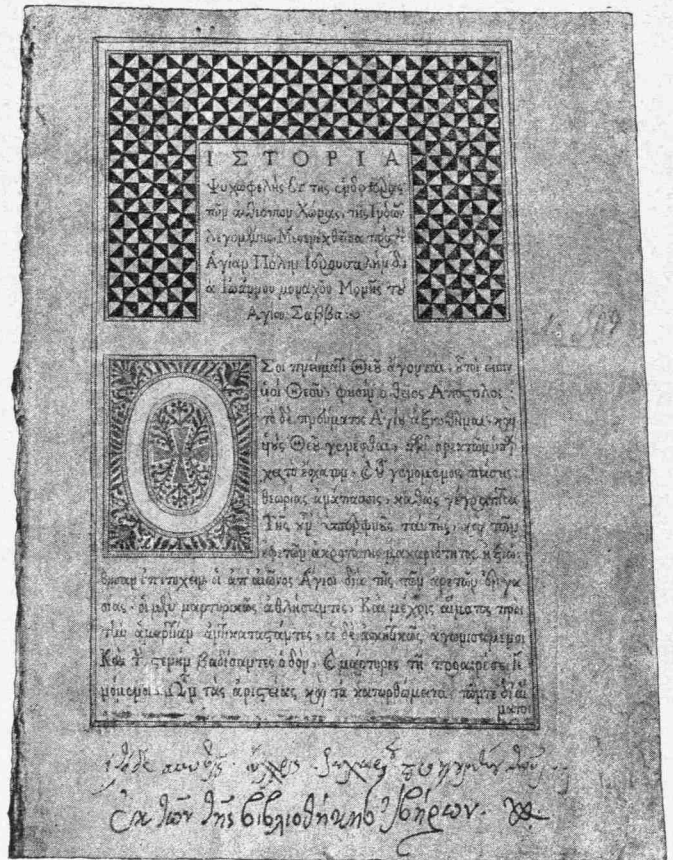 ΙΣΤΟΡΙΑ
Ψυχωφελὴς ἐκ τῆς ἐνδοτέρας
τῶν αἰθιόπων Χώρας, τῆς Ἰνδῶν
λεγομένης, Μετενεχθεῖσα πρὸς τὴν
Ἁγίαν Πόλιν Ἱερουσαλὴμ δι
α Ἰωάννου μοναχοῦ Μονῆς τοῦ
Ἁγίου Σάββα
Ὅσοι πνεύματι Θεοῦ ἄγονται, οὗτοί εἰσιν
υἱοὶ Θεοῦ, φησὶν ὁ θεῖος Ἀπόστολος
τὸ δὲ πνεύματος Ἁγίου ἀξιωθῆναι, καὶ
υἱοὺς Θεοῦ γενέσθαι, τῶν ὀρεκτῶν ὑπάρ
χει τὸ ἔσχατον, οὗ γενόμενος πάσης
θεωρίας ἀνάπαυσις, καθὼς γέγραπται
Τῆς οὖν ὑπερφυοῦς ταύτης, καὶ τῶν
ἐφετῶν ἀκροτάτης μακαριότητος ἠξιώ
θησαν ἐπιτυχεῖν οἱ ἀπ' αἰῶνος Ἅγιοι διὰ τῆς τῶν ἀρετῶν ἐργα
σίας, οἱ μὲν μαρτυρικῶς ἀθλήσαντες, Καὶ μέχρις αἵματος πρὸς
τὴν ἁμαρτίαν ἀντικαταστάντες, οἱ δὲ ἀσκητικῶς ἀγωνισάμενοι
Καὶ τὴν στενὴν βαδίσαντες ὁδόν, καὶ μάρτυρες τῇ προαιρέσει γε
νόμενοι. Ὧν τὰς ἀριστείας καὶ τὰ κατορθώματα, τῶν τε δι' αἵ
ματος
Ἐκ τῶν τῆς βιβλιοθήκης Ἰβήρων.